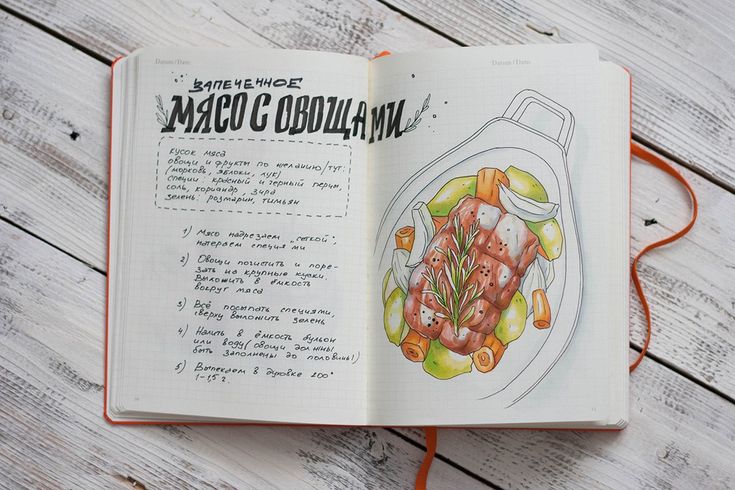 Datum / Date:
Datum / Date:
ЗАПЕЧЕННОЕ
МЯСО С ОВОЩАМИ
кусок мяса
овощи и фрукты по желанию/тут:
(морковь, яблоки, лук)
специи: красный и черный перец,
соль, кориандр, зира
зелень: розмарин, тимьян
1) Мясо надрезаем „сеткой",
натераем специями
2) Овощи погистить и поре-
зать на крупные куски.
Выложить в ёмкость
вокруг мяса
3) Всё посыпать специями,
сверху выложить зелень
4) Налить в ёмкость бульон
или воду (овощи должны
быть заполнены до половины!)
5) Выпекаем в духовке 200°
1-1,5 г.